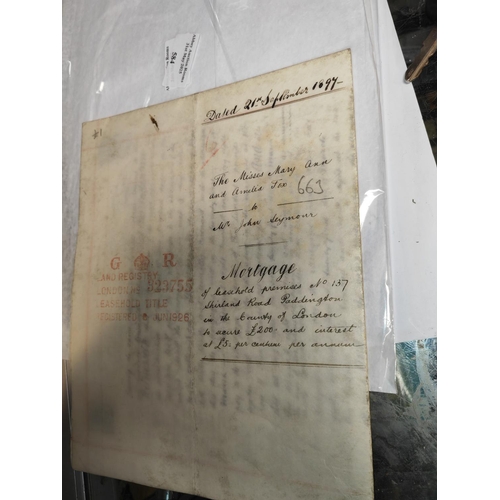 584
#1
Dated 21st September 1897
The Misses Mary Ann
and Amelia Fox
663
to
Mr John Seymour
Mortgage
of leasehold premises No 157
Shirland Road Paddington
in the County of London
to secure £200 and interest
at £5 per centum per annum
G R
LAND REGISTRY
LONDON 323755
LEASEHOLD TITLE
JUN 1926